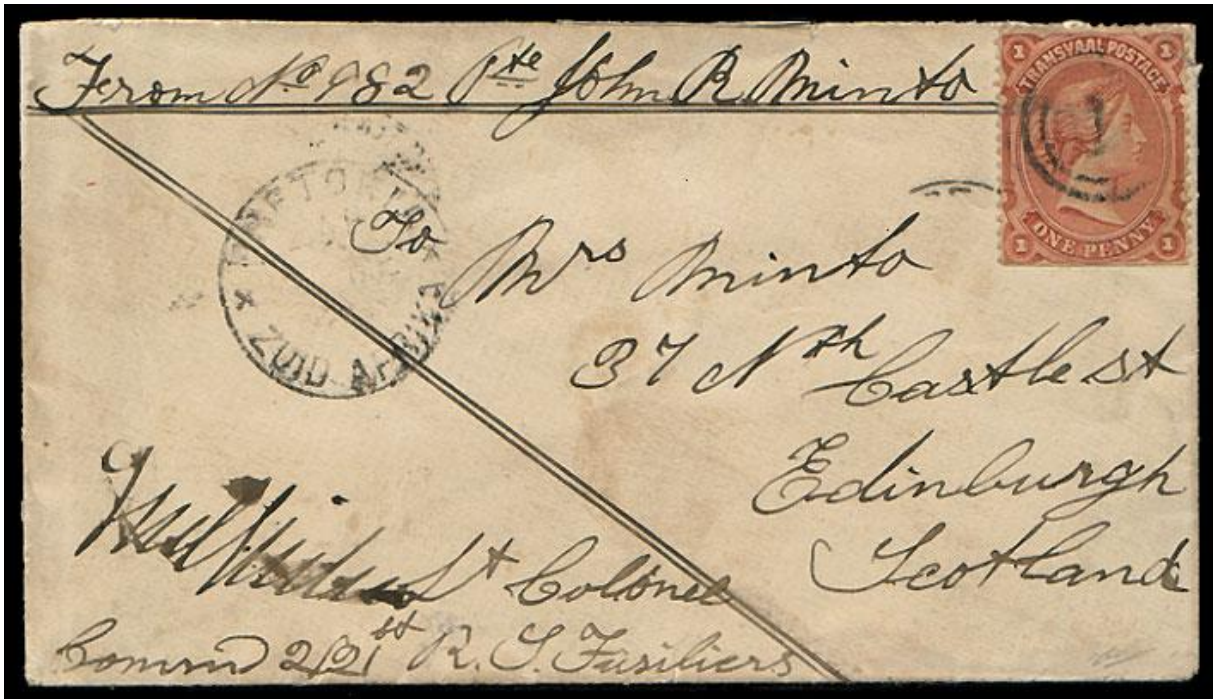 From No 982 Pte John R Minto
TRANSVAAL POSTAGE
1 1
ONE PENNY
1 1
PRETORIA
ZUID AFRIKA
To Mrs Minto
37 Nth Castle st
Edinburgh
Scotland
Lt Colonel
Commd 2/21st R. S. Fusiliers